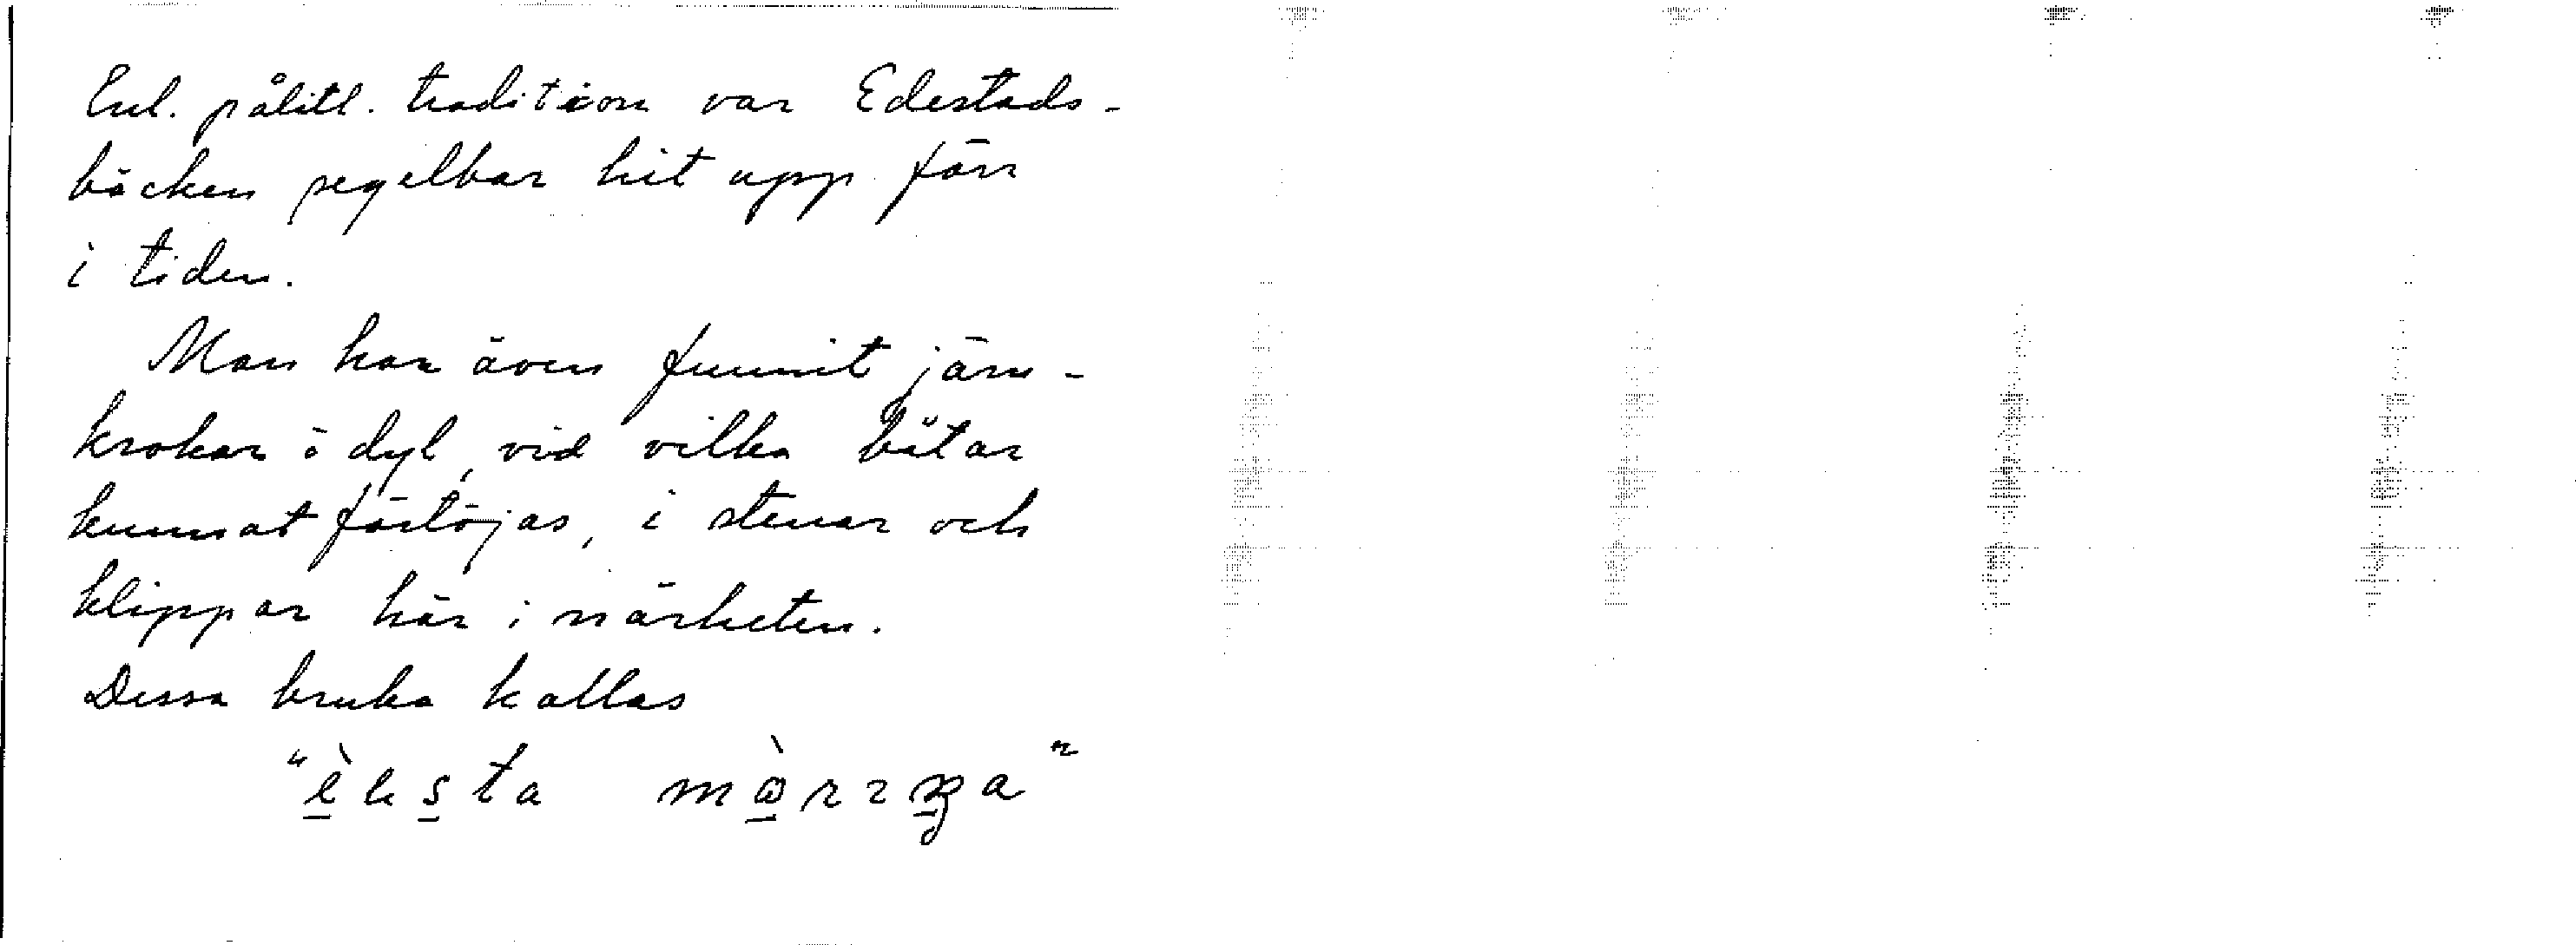 Enl. pålitl. tradition var Edestads-
bäcken segelbar hit upp förr
i tiden.
Man har även funnit järn-
krokar o dyl, vid vilka båtar
kunnat förtöjas, i stenar och
klippar här i närheten.
Dessa bruka kallas